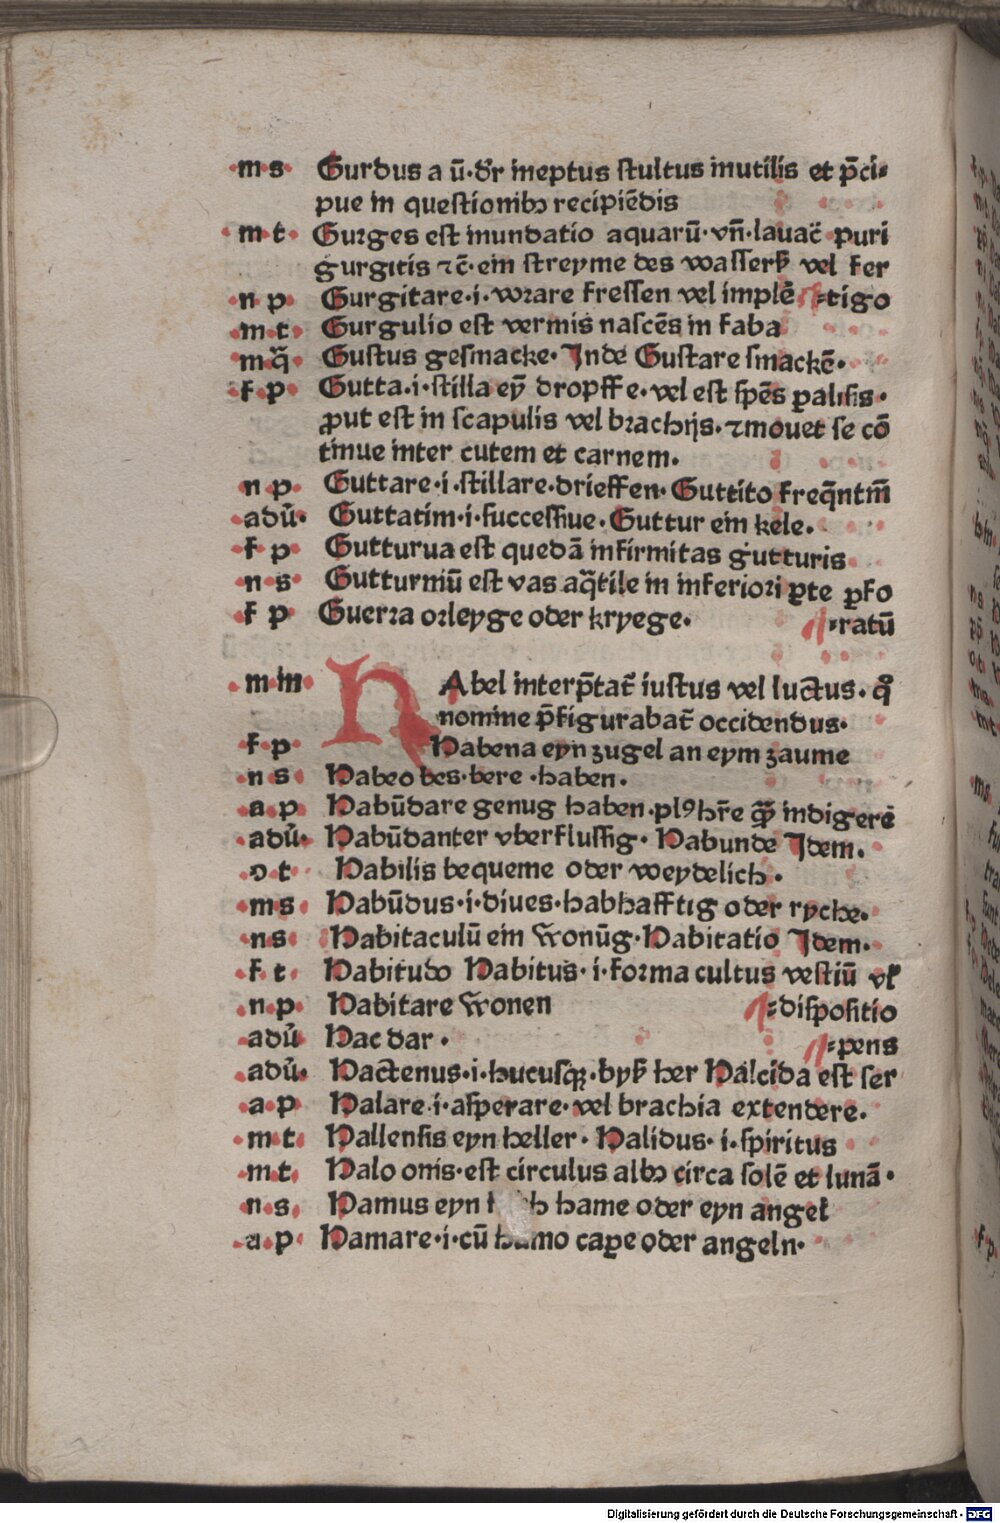 ·m·s· Gurdus a ū·dr̄ ineptus stultus inutilis et p̄ci⸗
pue in questionibꝫ recipiēdis
·m t· Gurges est inundatio aquarū·vn̄·lauac̄ puri
gurgitis ⁊c̄·ein streyme des wassers vel fer
·n p· Gurgitare·i·vrare fressen vel implē ⸗tigo
·m·t· Gurgulio est vermis nascēs in faba
·mq̄· Gustus gesmacke·Inde Gustare smackē·
·f·p· Gutta·i·stilla eyn̄ dropffe·vel est spēs palisis·
ꝓut est in scapulis vel brachijs·⁊mouet se cō
tinue inter cutem et carnem·
·n p· Guttare·i·stillare·drieffen·Guttito freq̄ntm̄
·adū· Guttatim·i·successiue·Guttur ein kele·
·f p· Gutturua est quedā infirmitas gutturis
·n s· Gutturniū est vas aq̄tile in inferiori ꝑte ꝑfo
·f p· Guerra orleyge oder kryege· ⸗ratū
·m in· HAbel interp̄tat̄ iustus vel luctus·qꝛ
nomine p̄figurabat̄ occidendus·
·f·p· Habena eyn zugel an eym zaume
·n s· Habeo bes·bere·haben·
·a·p· Habūdare genug haben·plꝰ hr̄e qꝫ̄ indigerē
·adū· Habūdanter vberflussig·Habunde Idem·
·o t· Habilis bequeme oder weydelich·
·m s· Habūdus·i·diues·habhafftig oder ryche·
·n s· Habitaculū ein wonūg·Habitatio Idem·
·f t· Habitudo Habitus·i·forma cultus vestiū vl̄
·n·p· Habitare wonen ⸗dispositio
·adū Hac dar· ⸗pens
·adū· Hactenus·i·hucusqꝫ·byß her Halcida est ser
·a·p Halare·i·asperare·vel brachia extendere·
·m t· Hallensis eyn heller·Halidus·i·spiritus
·m t· Halo onis·est circulus albꝫ circa solē et lunā·
·n·s· Hamus eyn hame oder eyn angel
·a·p· Hamare·i·cū hamo caꝑe oder angeln·
Digitalisierung gefördert durch die Deutsche Forschungsgemeinschaft - DFG